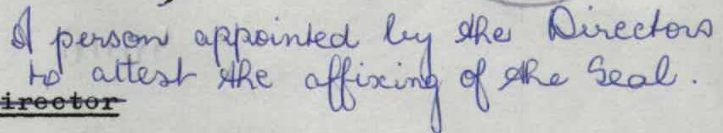 A person appointed by the Directors
to attest the affixing of the Seal.
irector